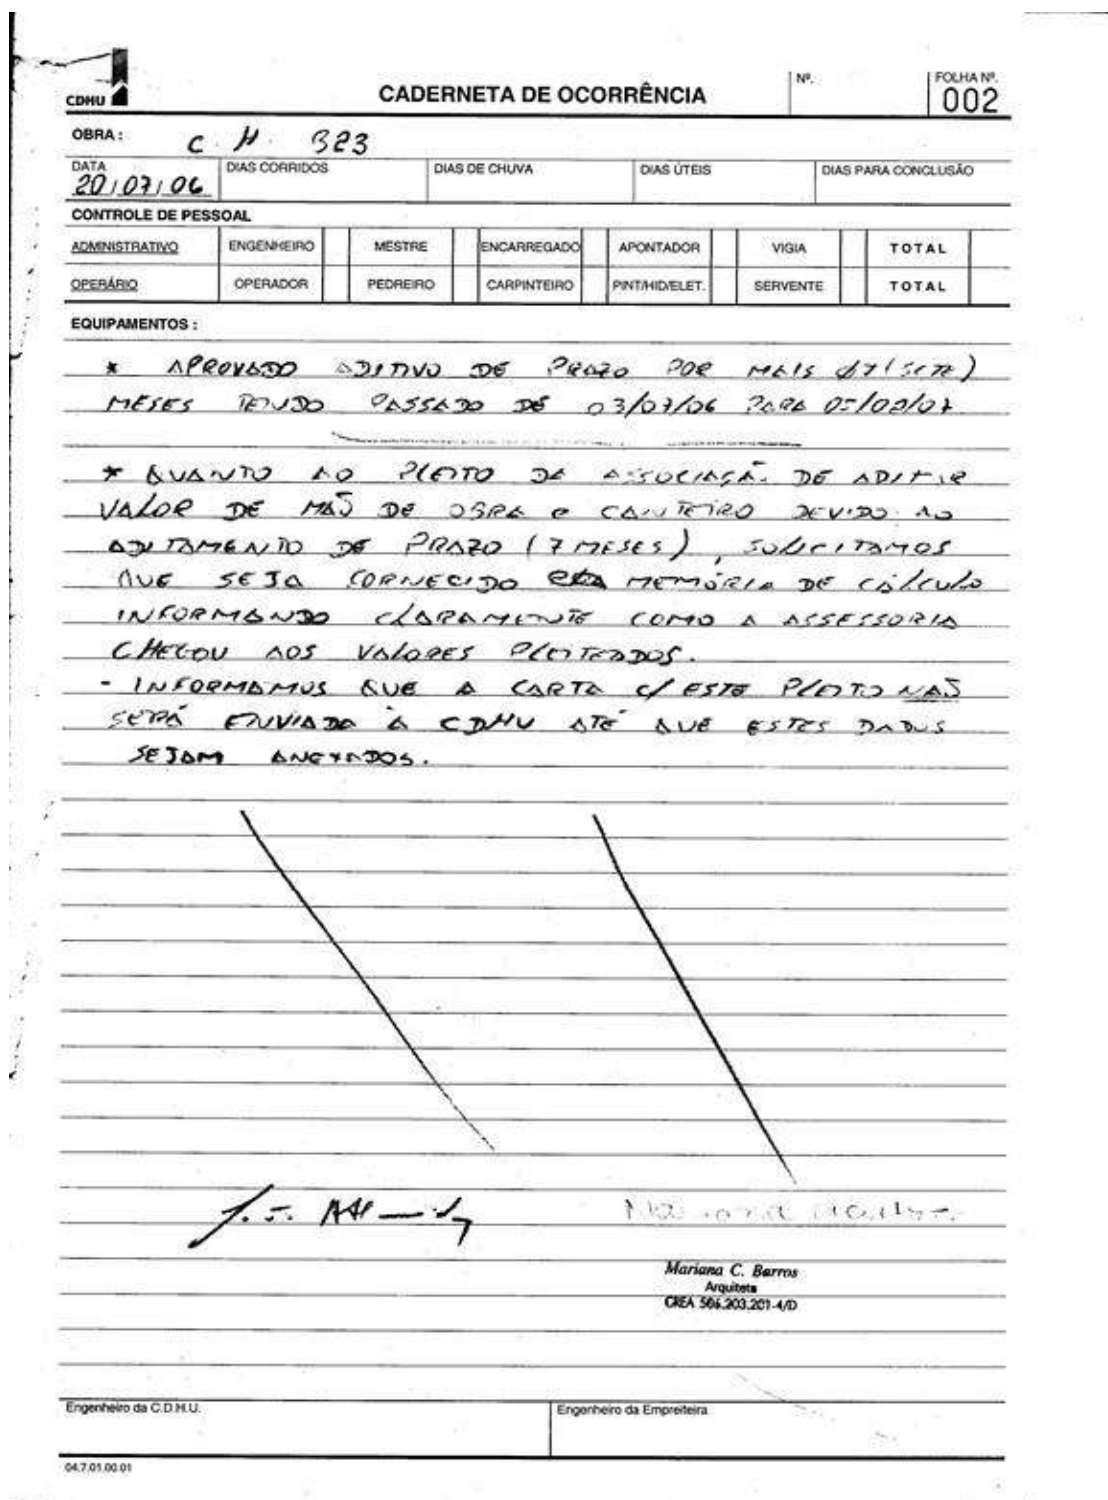 CDHU
CADERNETA DE OCORRÊNCIA
Nº.
FOLHA Nº.
002
OBRA : C. H. 323
DATA
20/07/06
DIAS CORRIDOS
DIAS DE CHUVA
DIAS ÚTEIS
DIAS PARA CONCLUSÃO
CONTROLE DE PESSOAL
ADMINISTRATIVO ENGENHEIRO MESTRE ENCARREGADO APONTADOR VIGIA TOTAL
OPERÁRIO OPERADOR PEDREIRO CARPINTEIRO PINT/HID/ELET. SERVENTE TOTAL
EQUIPAMENTOS :
* APROVADO ADITIVO DE PRAZO POR MAIS 07 (SETE)
MESES TENDO PASSADO DE 03/07/06 PARA
* QUANTO AO PLEITO DA ASSOCIAÇÃO DE ADITAR
VALOR DE MÃO DE OBRA e CANTEIRO DEVIDO AO
ADITAMENTO DE PRAZO (7 MESES), SOLICITAMOS
QUE SEJA FORNECIDO MEMÓRIA DE CÁLCULO
INFORMANDO CLARAMENTE COMO A ASSESSORIA
CHEGOU AOS VALORES PLEITEADOS.
- INFORMAMOS QUE A CARTA c/ ESTE PLEITO NÃO
SERÁ ENVIADA À CDHU ATÉ QUE ESTES DADOS
SEJAM ANEXADOS.
Mariana C. Barros
Arquiteta
CREA 506.203.201-4/D
Engenheiro da C.D.H.U.
Engenheiro da Empreiteira
04.7.01.00.01